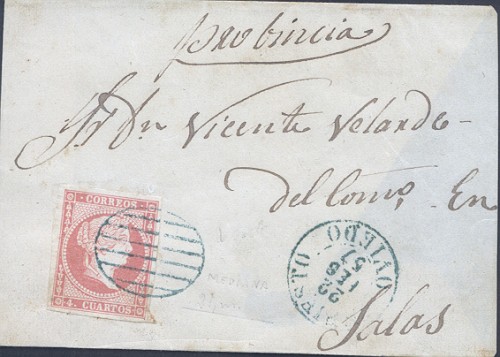 Provincia
Sr Dn Vicente Velarde
del Comº, En
Salas
CORREOS
4. CUARTOS
OVIEDO
22
FEB
57